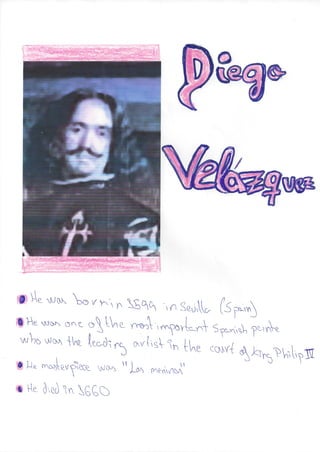 Diego
Velázquez
He was born in 1599 in Sevilla (Spain)
He was one of the most important Spanish painte
who was the leading artist in the court of King Philip IV
He masterpiece was "Las meninas"
He died in 1660